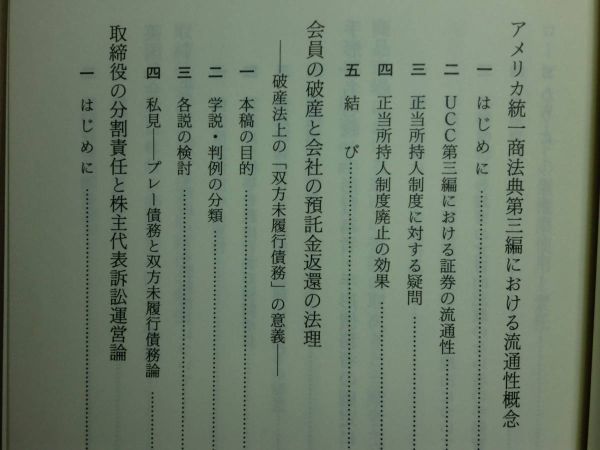 アメリカ統一商法典第三編における流通性概念
一　はじめに
二　UCC第三編における証券の流通性
三　正当所持人制度に対する疑問
四　正当所持人制度廃止の効果
五　結　び
会員の破産と会社の預託金返還の法理
――破産法上の「双方未履行債務」の意義――
一　本稿の目的
二　学説・判例の分類
三　各説の検討
四　私見――プレー債務と双方未履行債務論
取締役の分割責任と株主代表訴訟運営論
一　はじめに